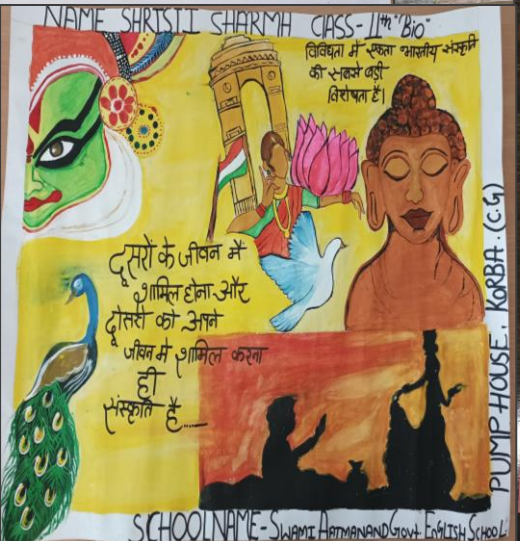 NAME SHRISTI SHARMA CLASS-11th "Bio"
विविधता में एकता भारतीय संस्कृति
की सबसे बड़ी
विशेषता है।
दूसरों के जीवन मे
शामिल होना और
दूसरों को अपने
जीवन मे शामिल करना
ही
संस्कृति है....
PUMP HOUSE. KORBA.(C.G)
SCHOOL NAME-SWAMI AATMANAND GOVT ENGLISH SCHOOL.